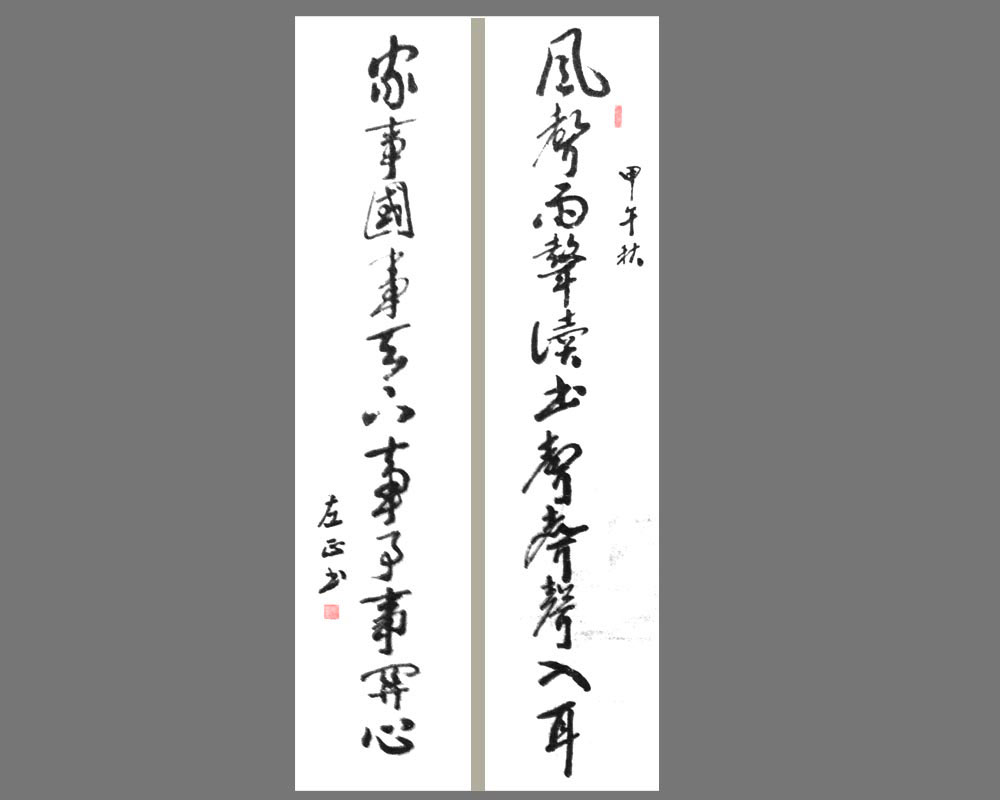 甲午秋
風聲雨聲读书聲聲聲入耳
家事國事天下事事事關心
左正书